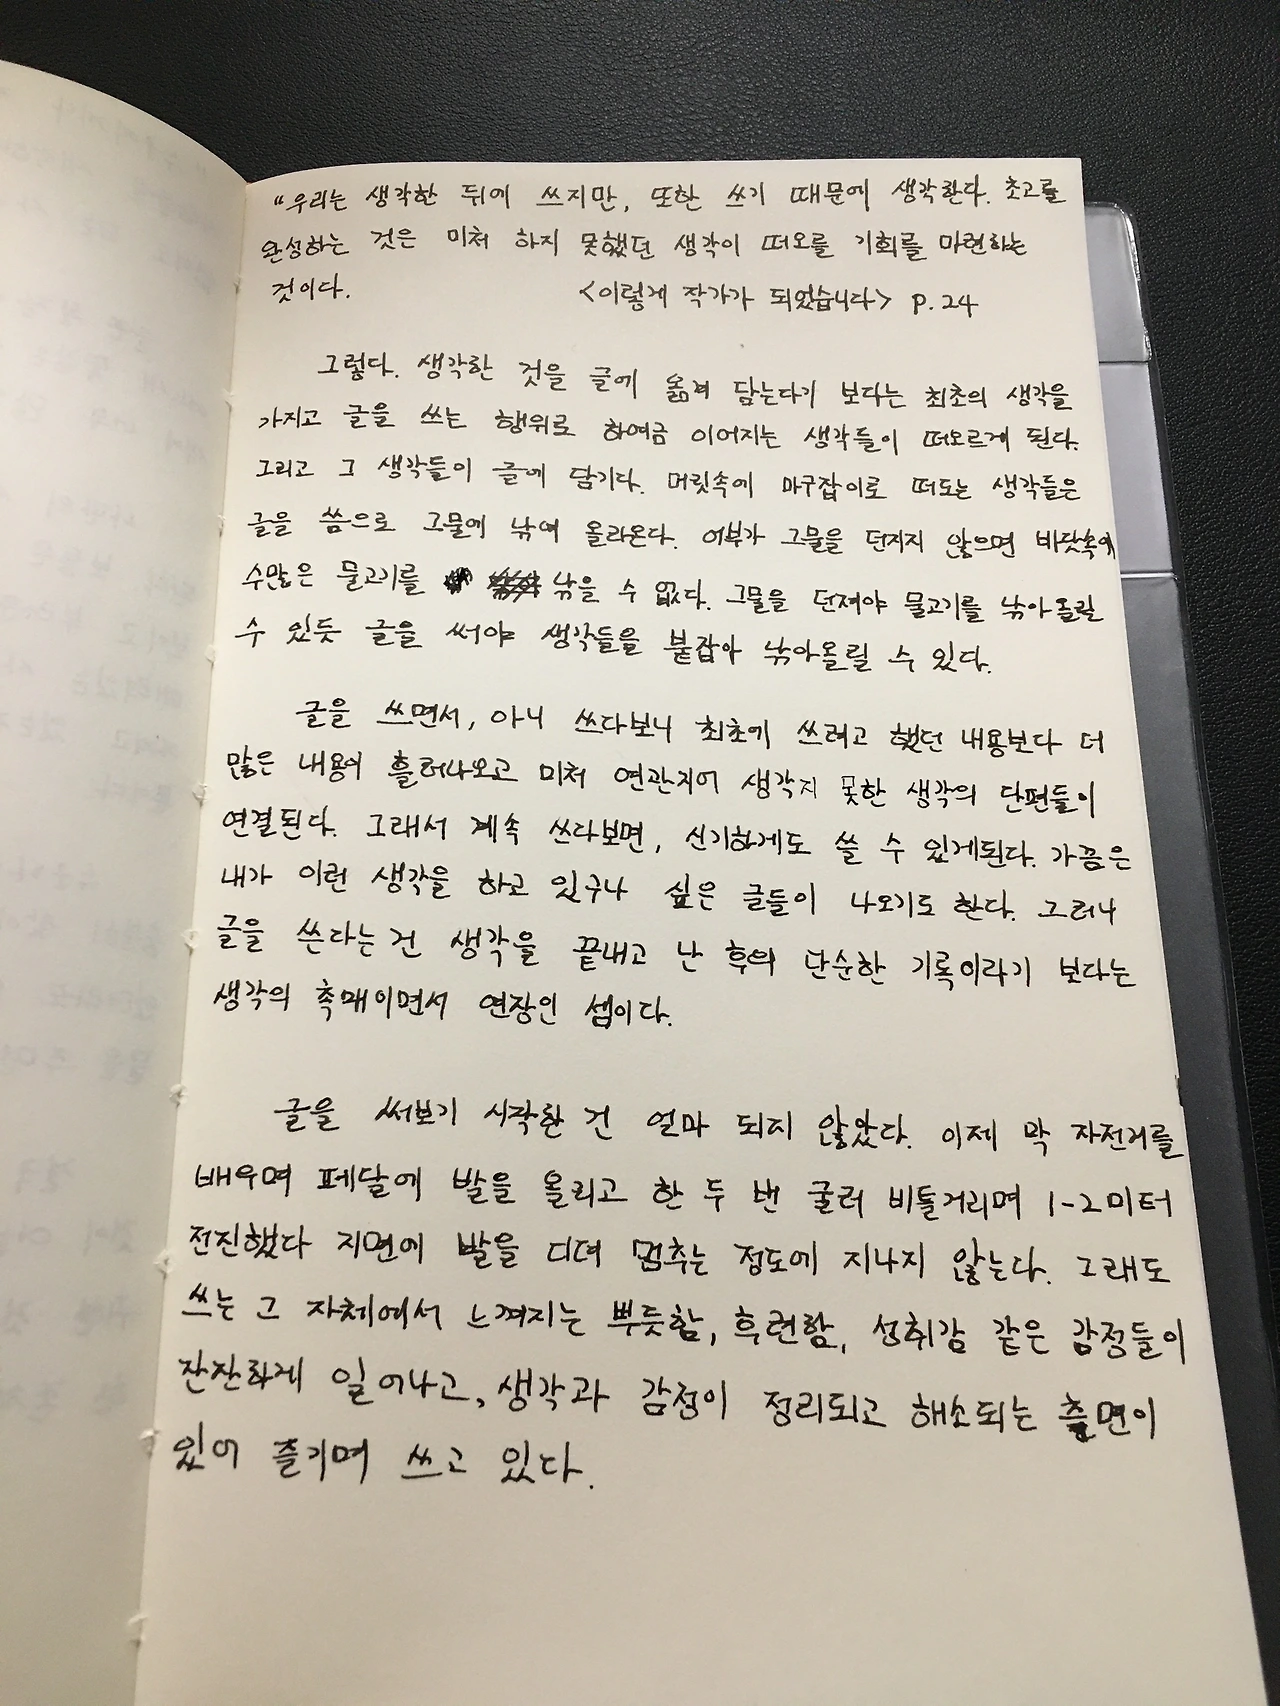 "우리는 생각한 뒤에 쓰지만, 또한 쓰기 때문에 생각한다. 초고를
완성하는 것은 미처 하지 못했던 생각이 떠오를 기회를 마련하는
것이다. <이렇게 작가가 되었습니다> P.24
그렇다. 생각한 것을 글에 옮겨 담는다기 보다는 최초의 생각을
가지고 글을 쓰는 행위로 하여금 이어지는 생각들이 떠오르게 된다.
그리고 그 생각들이 글에 담기다. 머릿속에 마구잡이로 떠도는 생각들은
글을 씀으로 그물에 낚여 올라온다. 어부가 그물을 던지지 않으면 바닷속에
수많은 물고기를 낚을 수 없다. 그물을 던져야 물고기를 낚아 올릴
수 있듯 글을 써야 생각들을 붙잡아 낚아올릴 수 있다.
글을 쓰면서, 아니 쓰다보니 최초에 쓰려고 했던 내용보다 더
많은 내용이 흘러나오고 미처 연관지어 생각지 못한 생각의 단편들이
연결된다. 그래서 계속 쓰다보면, 신기하게도 쓸 수 있게된다. 가끔은
내가 이런 생각을 하고 있구나 싶은 글들이 나오기도 한다. 그러나
글을 쓴다는 건 생각을 끝내고 난 후의 단순한 기록이라기 보다는
생각의 촉매이면서 연장인 셈이다.
글을 써보기 시작한 건 얼마 되지 않았다. 이제 막 자전거를
배우며 페달에 발을 올리고 한 두 번 굴러 비틀거리며 1-2미터
전진했다 지면에 발을 디뎌 멈추는 정도에 지나지 않는다. 그래도
쓰는 그 자체에서 느껴지는 뿌듯함, 후련함, 성취감 같은 감정들이
잔잔하게 일어나고, 생각과 감정이 정리되고 해소되는 측면이
있어 즐기며 쓰고 있다.